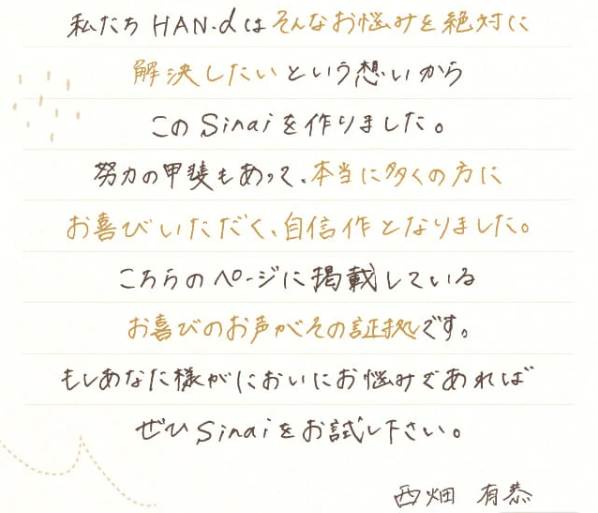 私たち HAN.dはそんなお悩みを絶対に
解決したいという想いから
このSinaiを作りました。
努力の甲斐もあって、本当に多くの方に
お喜びいただく、自信作となりました。
こちらのページに掲載している
お喜びのお声がその証拠です。
もしあなた様がにおいにお悩みであれば
ぜひSinaiをお試し下さい。
西畑 有恭